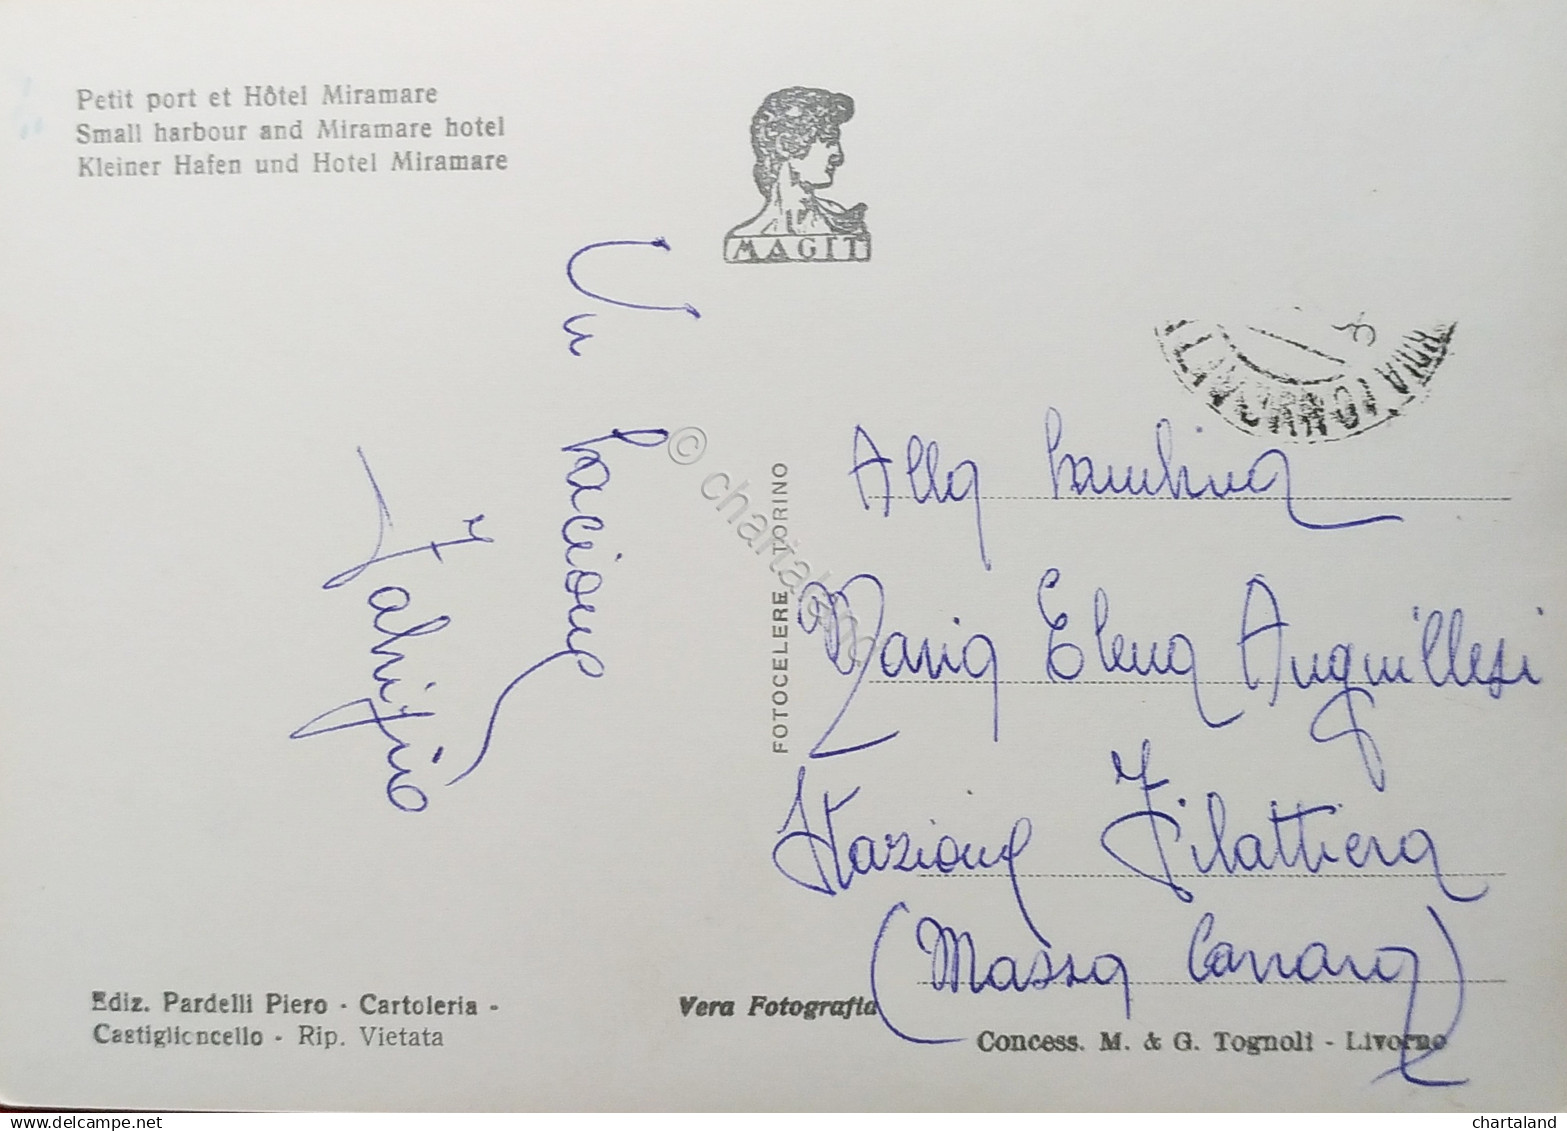 Petit port et Hôtel Miramare
Small harbour and Miramare hotel
Kleiner Hafen und Hotel Miramare
MAGIT
Un bacione
Fabrizio
FOTOCELERE TORINO
Alla bambina
Maria Elena Anguillesi
Stazione Filattiera
(Massa Carrara)
Ediz. Pardelli Piero - Cartoleria -
Castiglioncello - Rip. Vietata
Vera Fotografia
Concess. M. & G. Tognoli - Livorno
© chartaland
chartaland